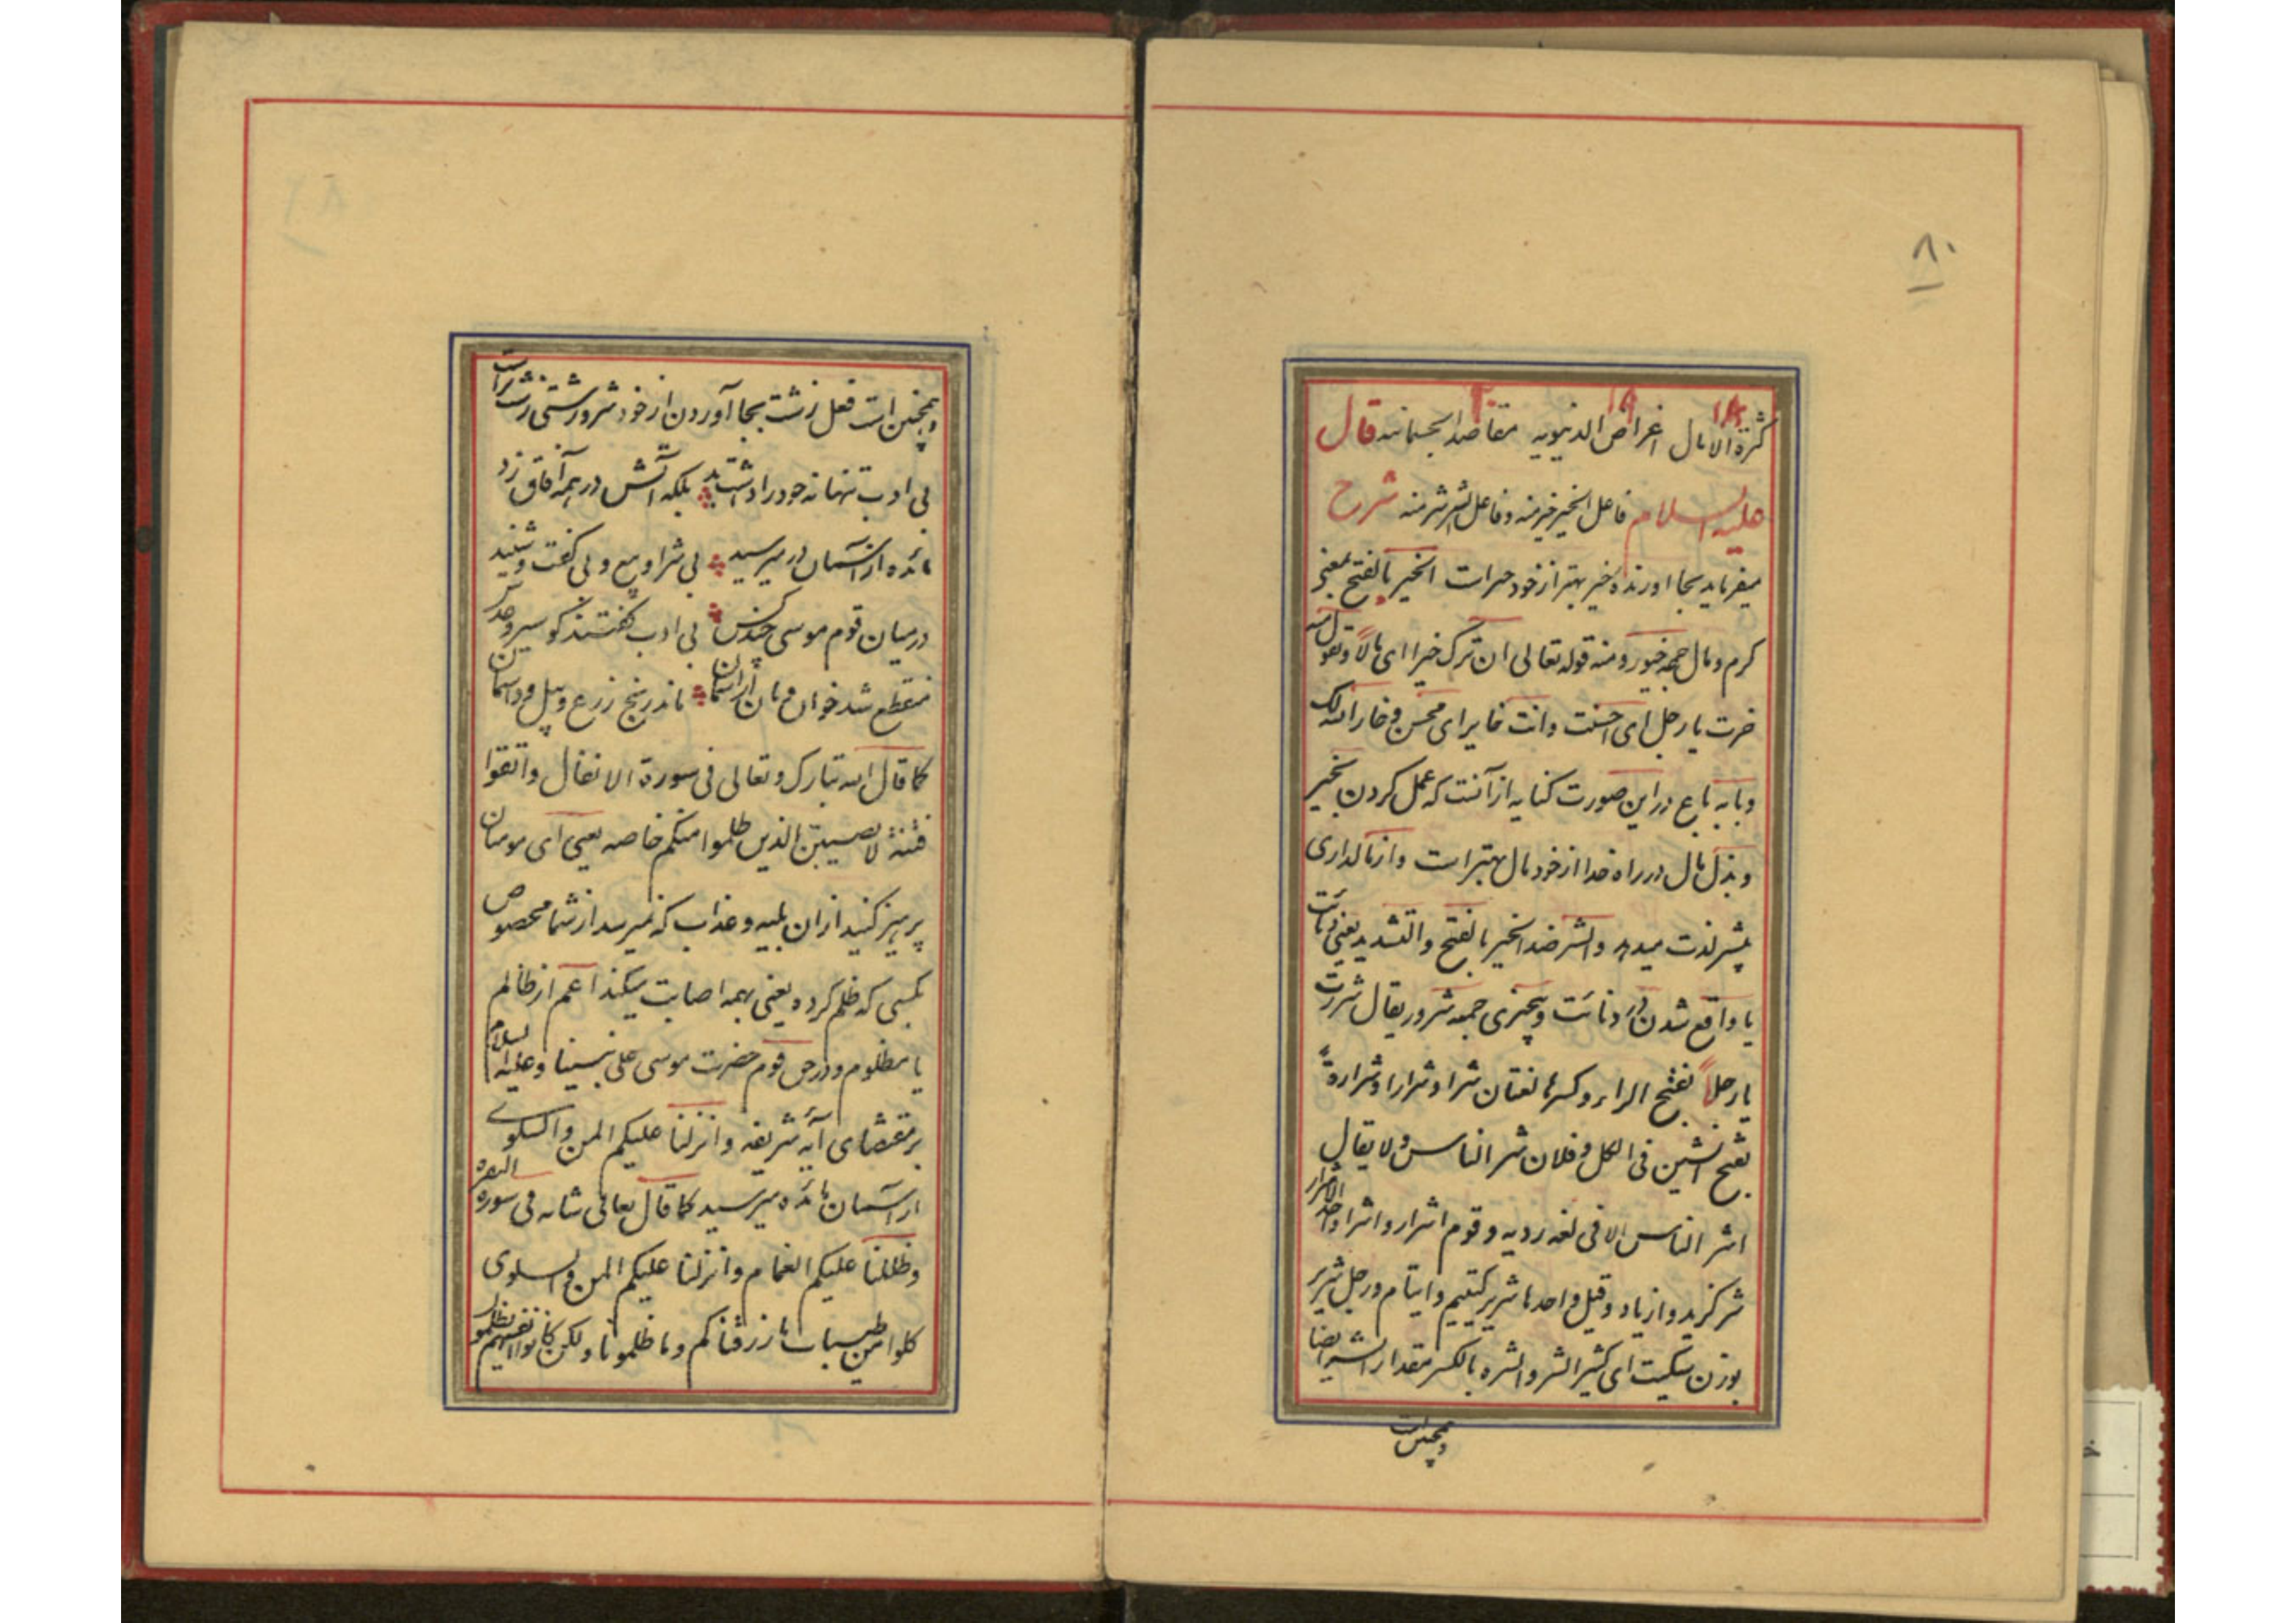 ۸۰
۱۸ ۱۹ ۲۰
کثرة الامال اغراض الدنیویه مقاصد الجسمانیه قال
علیه السلام فاعل الخیر خیر منه وفاعل الشر شر منه شرح
میفرماید بجا اورنده خیر بهتر از خود خیرات الخیر بالفتح بمعنی
کرم ومال جمعه خیور ومنه قوله تعالی ان ترک خیرا ای مالا وتقول منه
خرت یا رجل ای احسنت وانت خایر ای محسن وخار الله لک
وبابه باع در این صورت کنایه از آنست که عمل کردن بخیر
وبذل مال در راه خدا از خود مال بهتر است واز مالداری
بیشتر لذت میدهد والشر ضد الخیر بالفتح والتشدید یعنی دنائت
یا واقع شدن در دنائت وبیچیزی جمعه شرور یقال شررت
یا رجلا بفتح الراء وکسرها لغتان شرا وشرارا وشرارة
بفتح الشین فی الکل وفلان شر الناس ولا یقال
اشر الناس الا فی لغه ردیه وقوم اشرار واشرا واحد الاشرار
شر کزید وازیاد وقیل واحدها شریر کیتیم وایتام ورجل شریر
بوزن سکیت ای کثیر الشر والشره بالکسر مقدار الشر ایضا
وهمچنین است
وهمچنین است فعل زشت بجا آوردن از خود شرور زشتی زشت تر است
بی ادب تنها نه خود را داشت بد بلکه آتش در همه آفاق زد
مائده از آسمان در میرسید بی شرا وبیع وبی گفت وشنید
در میان قوم موسی چند کس بی ادب گفتند کو سیر وعدس
منقطع شد خوان ونان از آسمان ماند رنج زرع وبیل وداسمان
کما قال الله تبارک وتعالی فی سورة الانفال واتقوا
فتنة لا تصیبن الذین ظلموا منکم خاصه یعنی ای مومنان
پرهیز کنید از ان بلیه وعذاب که نمیرسد از شما مخصوص
کسی که ظلم کرده یعنی بهمه اصابت میکند اعم از ظالم
یا مظلوم ودر حق قوم حضرت موسی علی نبینا وعلیه السلام
بر مقتضای آیه شریفه وانزلنا علیکم المن والسلوی
از آسمان مائده میرسید کما قال تعالی شانه فی سورة البقره
وظللنا علیکم الغمام وانزلنا علیکم المن والسلوی
کلوا من طیبات ما رزقناکم وما ظلمونا ولکن کانوا انفسهم یظلمون